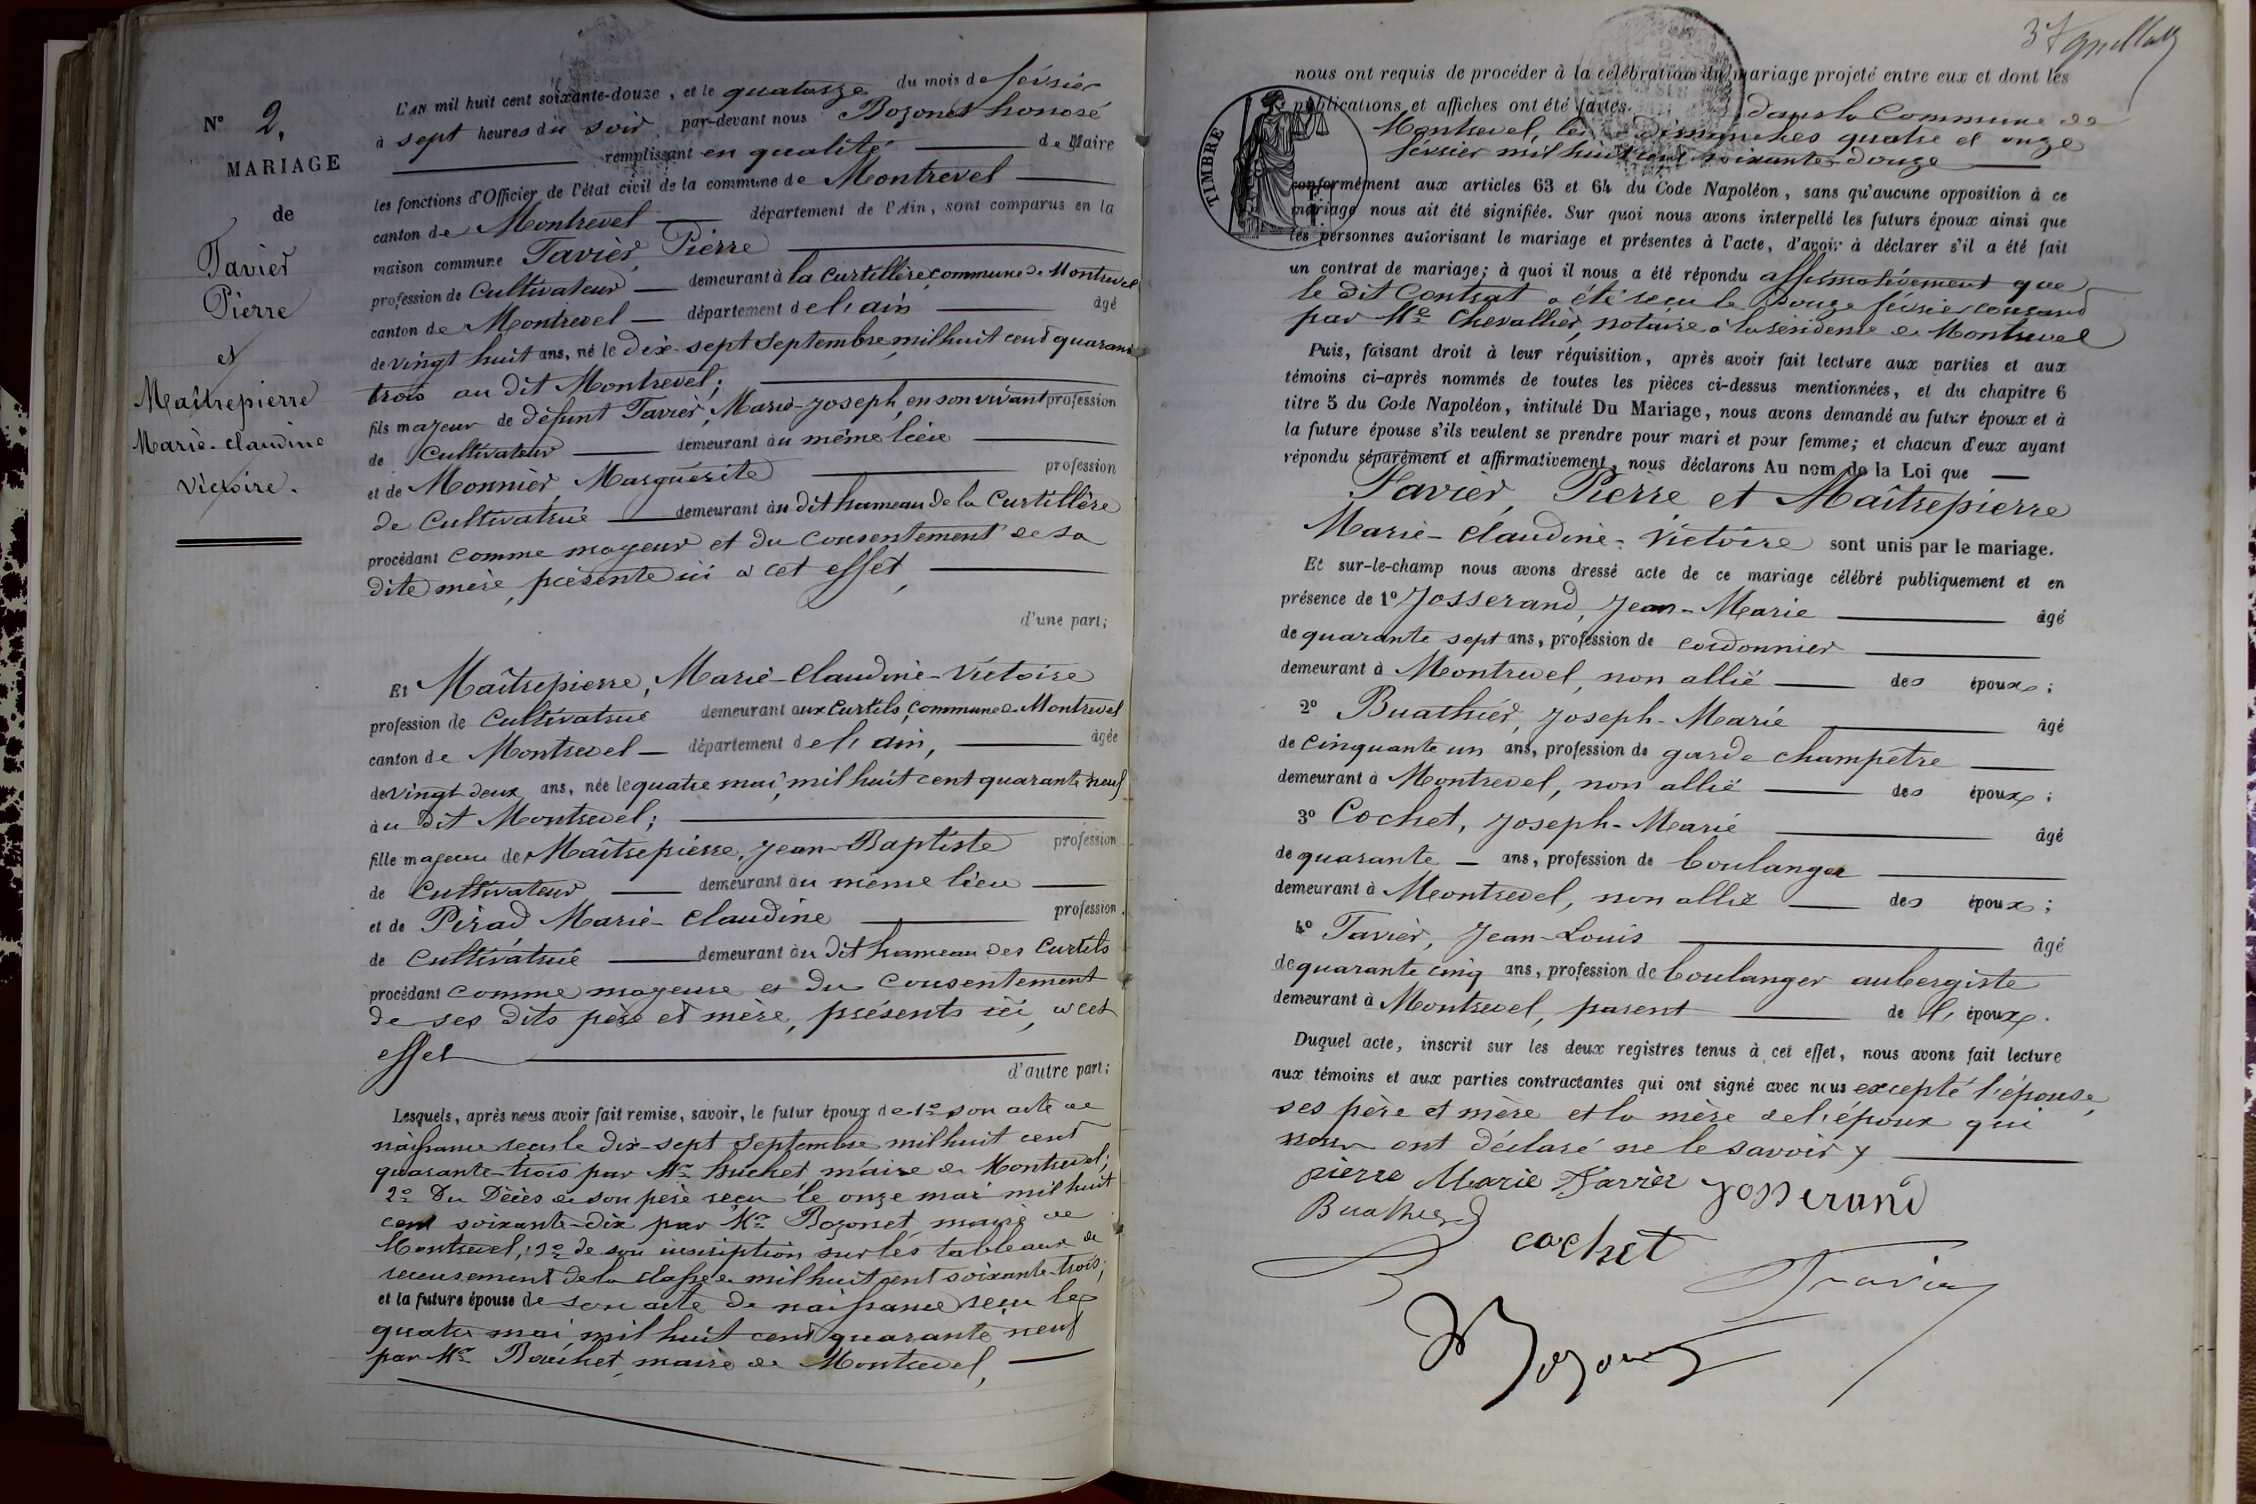 N° 2.
MARIAGE
de
Favier
Pierre
et
Maîtrepierre
Marie-Claudine
Victoire.
L'AN mil huit cent soixante-douze, et le quatorze du mois de février
à sept heures du soir, par-devant nous Bozonet honoré
remplissant en qualité de Maire
les fonctions d'Officier de l'état civil de la commune de Montrevel
canton de Montrevel département de l'Ain, sont comparus en la
maison commune Favier, Pierre
profession de Cultivateur demeurant à la Curtillère, commune de Montrevel
canton de Montrevel département de l'ain âgé
de vingt huit ans, né le dix-sept septembre, mil huit cent quarante
trois au dit Montrevel;
fils majeur de défunt Favier, Marie-Joseph, en son vivant profession
de Cultivateur demeurant au même lieu
et de Monnier, Marguerite profession
de Cultivatrice demeurant au dit hameau de la Curtillère
procédant comme majeur et du consentement de sa
dite mère, présente ici à cet effet,
d'une part;
Et Maîtrepierre, Marie-Claudine-Victoire
profession de Cultivatrice demeurant aux Curtils, commune de Montrevel
canton de Montrevel département de l'ain, âgée
de vingt-deux ans, née le quatre mai, mil huit cent quarante neuf
au dit Montrevel;
fille majeure de Maîtrepierre, Jean-Baptiste profession
de Cultivateur demeurant au même lieu
et de Pirad Marie-Claudine profession
de Cultivatrice demeurant au dit hameau des Curtils
procédant comme majeure et du consentement
de ses dits père et mère, présents ici, à cet
effet
d'autre part;
Lesquels, après nous avoir fait remise, savoir, le futur époux de 1° son acte de
naissance reçu le dix-sept septembre mil huit cent
quarante-trois par Mr huchet, maire de Montrevel;
2° Du Décès de son père reçu le onze mai mil huit
cent soixante-dix par Mr Bozonet maire de
Montrevel; 3° de son inscription sur les tableaux de
recensement de la classe de mil huit cent soixante-trois;
et la future épouse de son acte de naissance reçu le
quatre mai mil huit cent quarante neuf
par Mr huchet, maire de Montrevel,
nous ont requis de procéder à la célébration du mariage projeté entre eux et dont les
publications et affiches ont été faites dans la Commune de
Montrevel, les dimanches quatre et onze
février mil huit cent soixante-douze
TIMBRE
conformément aux articles 63 et 64 du Code Napoléon, sans qu'aucune opposition à ce
mariage nous ait été signifiée. Sur quoi nous avons interpellé les futurs époux ainsi que
les personnes autorisant le mariage et présentes à l'acte, d'avoir à déclarer s'il a été fait
un contrat de mariage; à quoi il nous a été répondu affirmativement que
le dit Contrat a été reçu le douze février courant
par Me Chevallier, notaire à la résidence de Montrevel
Puis, faisant droit à leur réquisition, après avoir fait lecture aux parties et aux
témoins ci-après nommés de toutes les pièces ci-dessus mentionnées, et du chapitre 6
titre 5 du Code Napoléon, intitulé Du Mariage, nous avons demandé au futur époux et à
la future épouse s'ils veulent se prendre pour mari et pour femme; et chacun d'eux ayant
répondu séparément et affirmativement, nous déclarons Au nom de la Loi que
Favier, Pierre et Maîtrepierre
Marie-Claudine-Victoire sont unis par le mariage.
Et sur-le-champ nous avons dressé acte de ce mariage célébré publiquement et en
présence de 1° Josserand, Jean-Marie âgé
de quarante sept ans, profession de cordonnier
demeurant à Montrevel, non allié des époux;
2° Buathier, Joseph-Marie âgé
de cinquante un ans, profession de garde champêtre
demeurant à Montrevel, non allié des époux;
3° Cochet, Joseph-Marie âgé
de quarante ans, profession de boulanger
demeurant à Montrevel, non allié des époux;
4° Favier, Jean-Louis âgé
de quarante cinq ans, profession de boulanger aubergiste
demeurant à Montrevel, parent de l'époux.
Duquel acte, inscrit sur les deux registres tenus à cet effet, nous avons fait lecture
aux témoins et aux parties contractantes qui ont signé avec nous excepté l'épouse,
ses père et mère et la mère de l'époux qui
nous ont déclaré ne le savoir
pierre Marie Favier Josserand
Buathier
cochet Favier
Bozonet